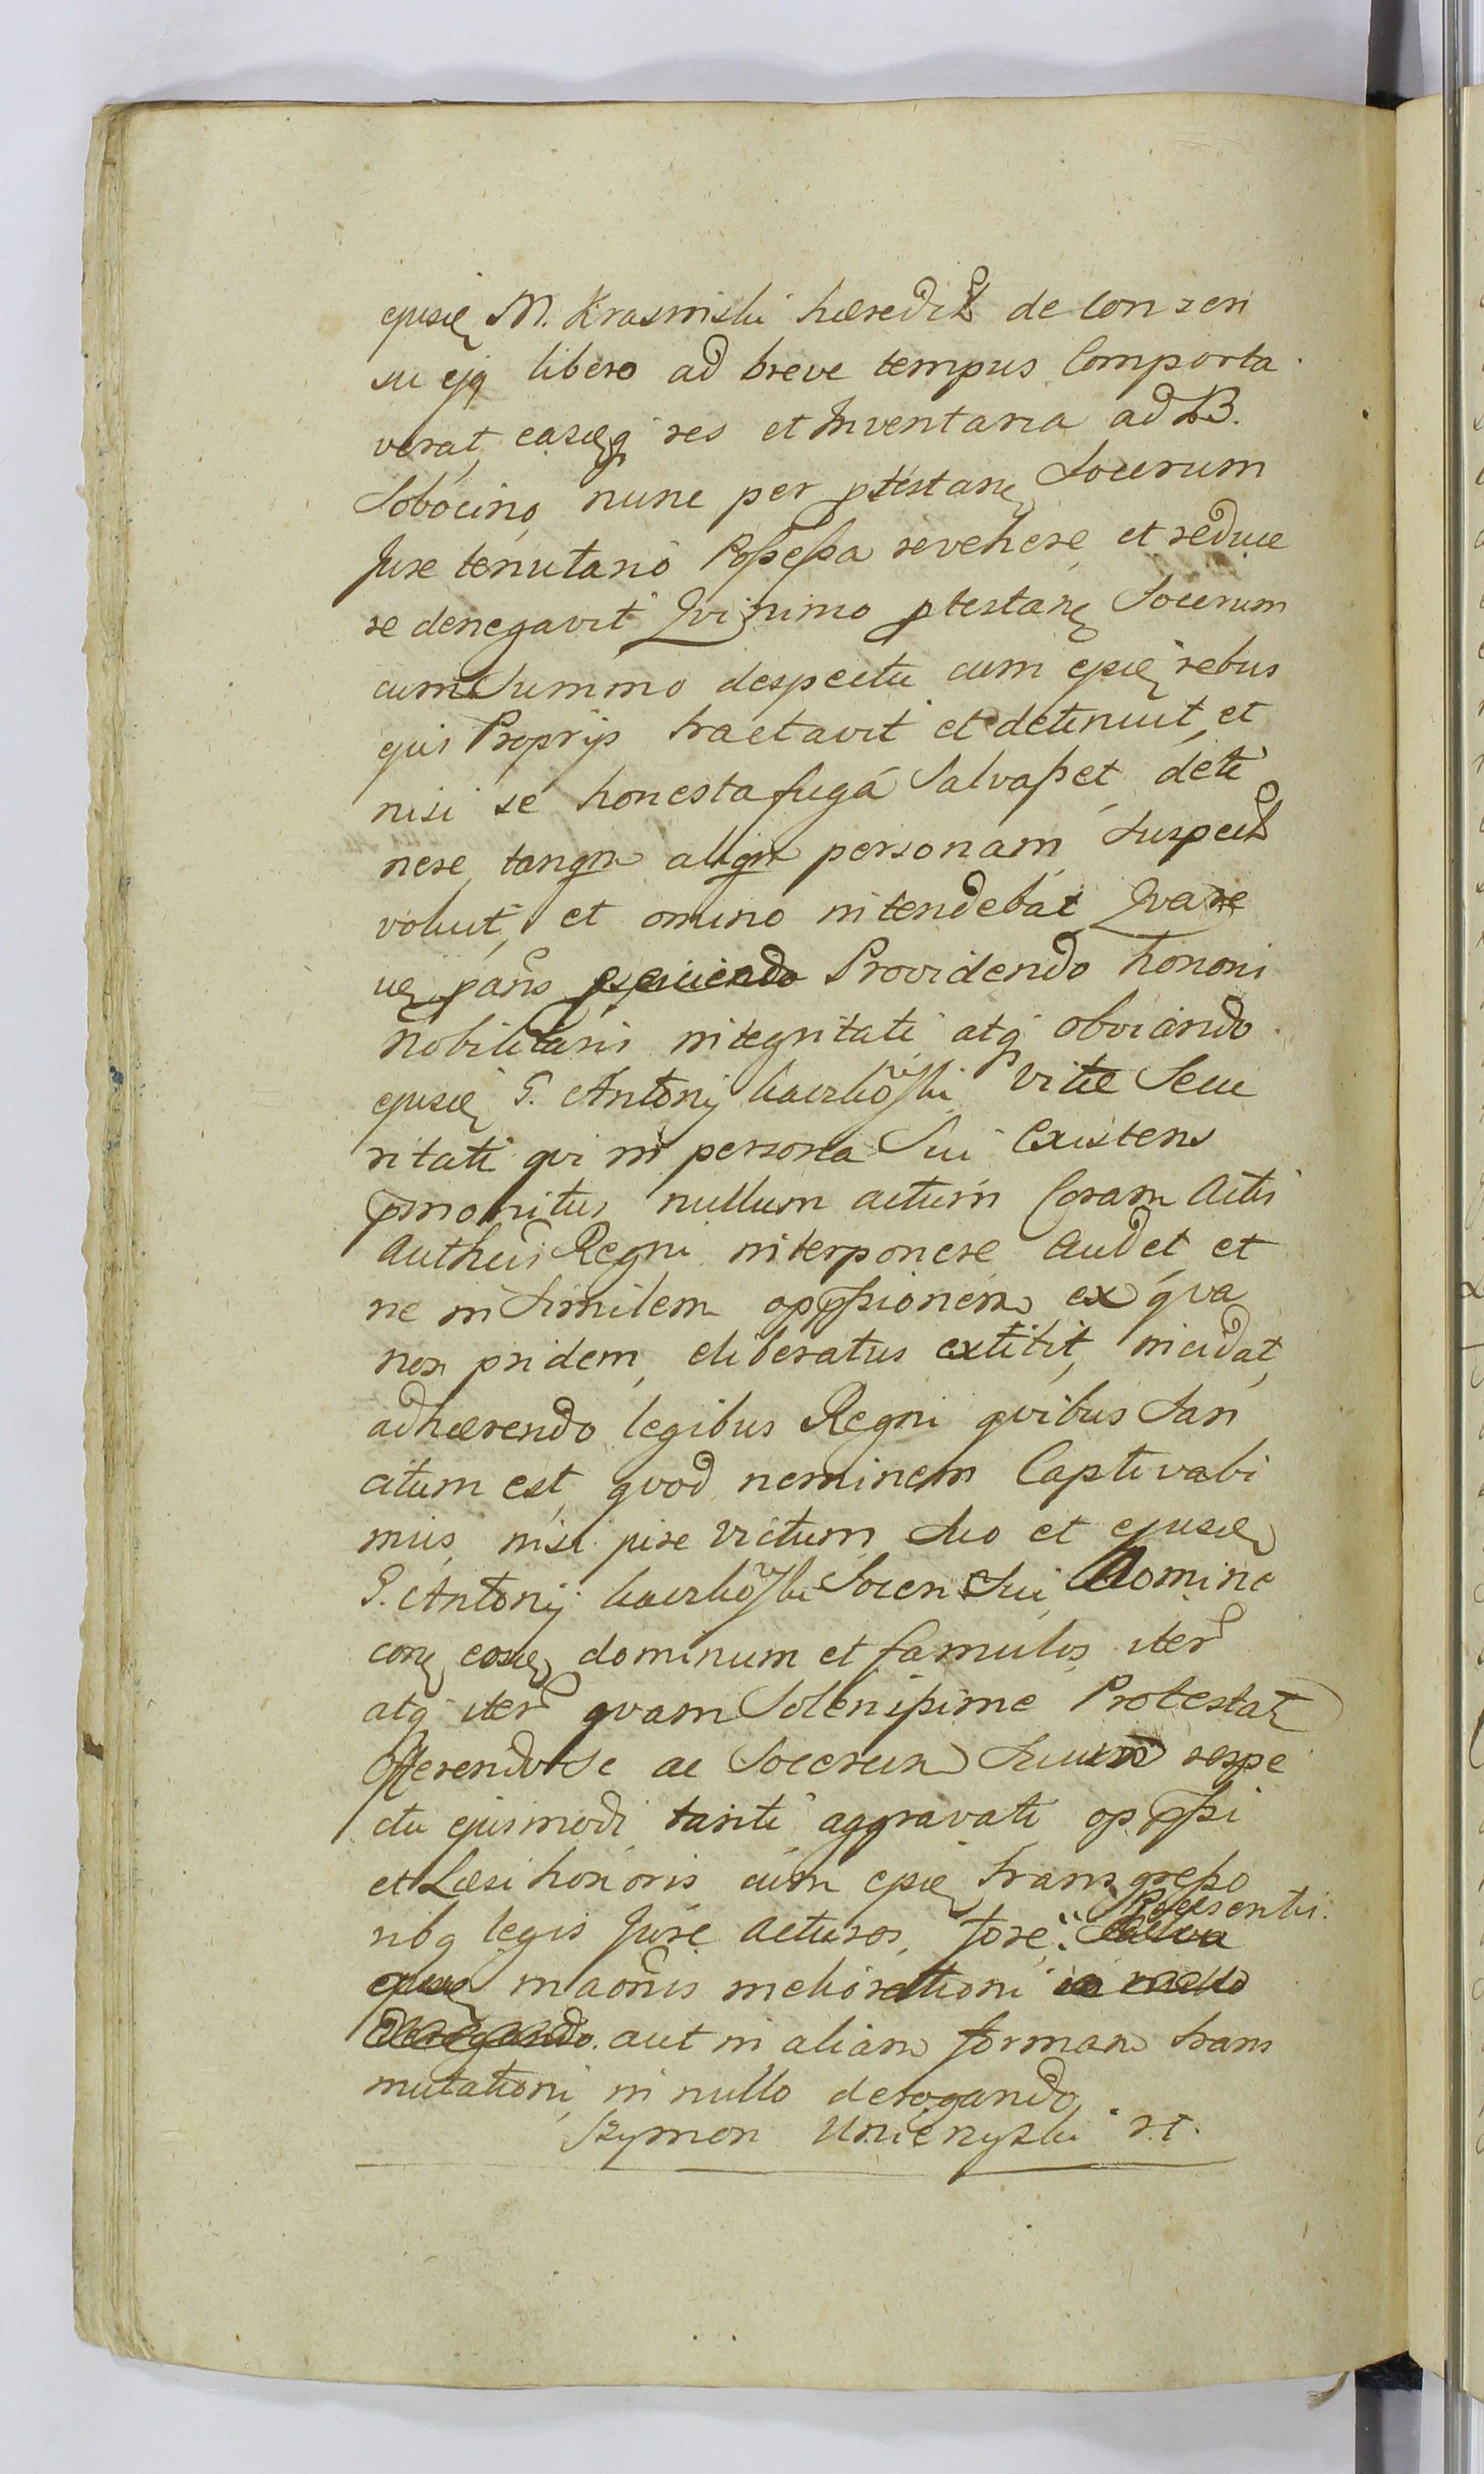 ejusd M. Krasinski hæredis de Consen
su ejq libero ad breve tempus Comporta
verat, easdq res et Inventaria ad B.
Sobocino nunc per ptestan Socerum
Jure tenutario Possessa revehere et reduce
re denegavit Qvinimo ptestan Socerum
cum Summo despectu cum ejusd rebus
ejus Proprijs tractavit et detinuit, et
nisi se honesta fugá Salvasset, deti
nere, tanqm aliqm personam Suspect
voluit, et omino intendebat Qvare
pans Providendo honori
nobilitaris integritati atq obviando
ejusd G. Antonij vitæ Secu
ritati qvi in persona Sui Existens
pmonitus nullum actum Coram Actis
Autheis Regni interponere Audet, et
ne in Similem oppssionem ex qva
non pridem, eliberatus extitit, incidat,
adhærendo legibus Regni qvibus San
citum est, qvod neminem Captivabi
mus, nisi jure victum Suo et ejusd
G. Antonij Soceri Sui Nomine
con eosd dominum et famulos iter
atq iter qvam Solenissime Protestat
Offerendo Se ac Socerum Suum respe
ctu ejusmodi tanti aggravati oppssi
et Læsi honoris cum ejusd transgresso
ribq legis Jure Acturos, fore, Præsentis
maonis meliorationi in nullo
derogando. aut in aliam formam trans
mutationi in nullo derogando
Szymon Unierzyski